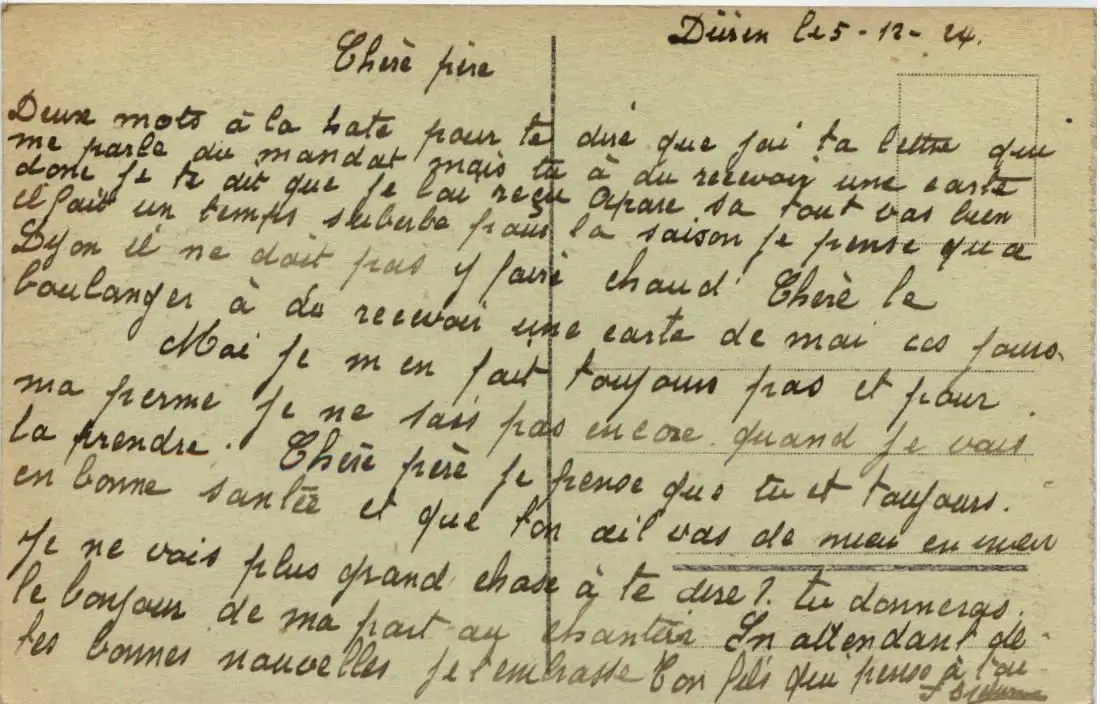 Düren le 5-12-24.
Chère père
Deux mots à la hate pour te dire que jai ta lettre qui
me parle du mandat mais tu à du recevoir une carte
donc je te dit que je lai reçu Apare sa tout vas bien
il fait un temps suberbe pour la saison je pense qu a
Lyon il ne doit pas y faire chaud Chère le
boulanger à du recevoir une carte de moi ces jours.
Moi je m en fait toujours pas et pour
ma perme je ne sais pas encore quand je vais
la prendre. Chère père je pense que tu et toujours.
en bonne santée et que ton œil vas de mieu en mieu
Je ne vois plus grand chose à te dire ?. tu donneras.
le bonjour de ma part au chantier En attendant de
tes bonnes nouvelles je t embrasse Ton fils qui pense à toi